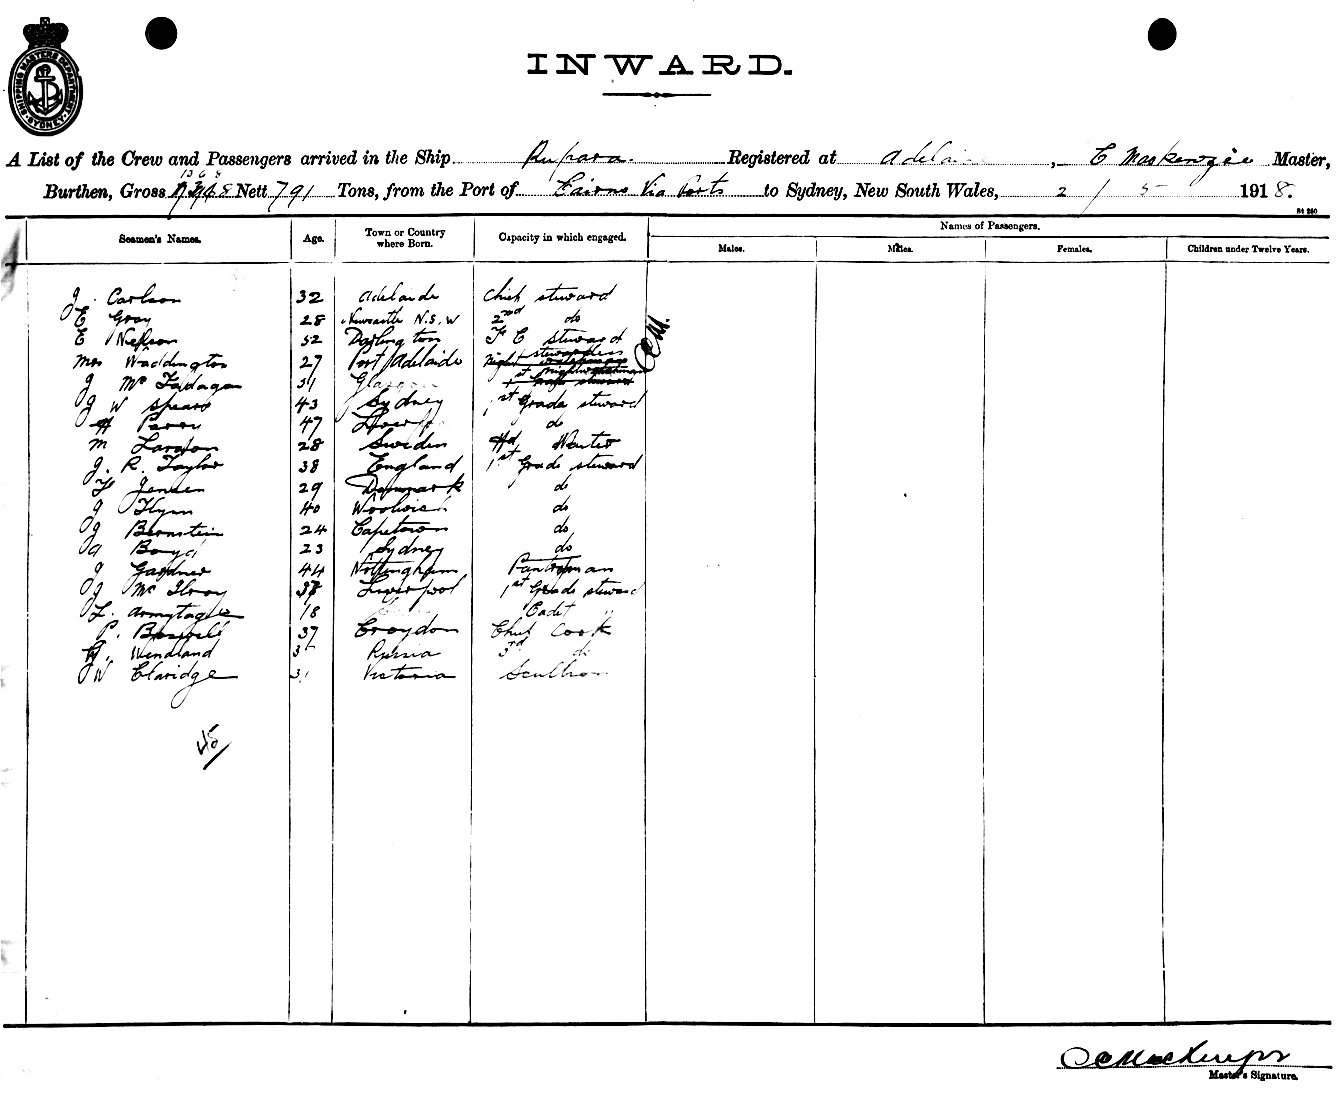 SHIPPING MASTERS DEPARTMENT SYDNEY
INWARD.
A List of the Crew and Passengers arrived in the Ship Rupara. Registered at Adelai , C Mackenzie Master,
1368
Burthen, Gross Nett 791 Tons, from the Port of Cairns Via Ports to Sydney, New South Wales, 2 / 5 1918.
Seamen's Names. Age. Town or Country where Born. Capacity in which engaged. Names of Passengers.
Males. Males. Females. Children under Twelve Years.
J. Carlson 32 Adelaide Chief steward
E Gray 28 Newcastle N.S.W 2nd do
E Nielson 52 Darlington F C steward
Mrs Waddington 27 Port Adelaide stewardess
J Mc Fadagan 31 Glasgow
J W Spears 43 Sydney 1st Grade steward
H Perry 47 do
M Larsson 28 Sweden Hd Waiter
J. R. Taylor 38 England 1st Grade steward
F Jensen 29 Denmark do
J Flynn 40 Woolwich do
J Bernstein 24 Capetown do
A Boyd 23 Sydney do
J Gardner 44 Nottingham Pantryman
J Mc Ilroy 38 Liverpool 1st Grade steward
L. Armytage 18 Cadet "
P. 37 Croydon Chief Cook
H. Wendland 3 Russia 3rd do
W Claridge 31 Victoria Scullion
C Mackenzie
Master's Signature.